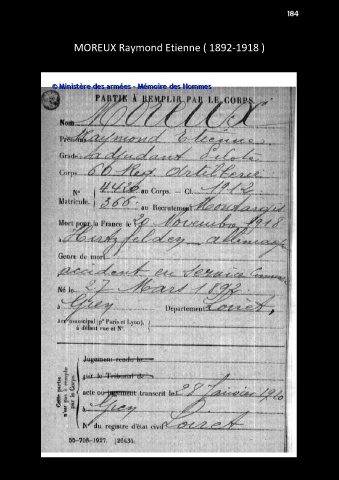 184
MOREUX Raymond Etienne ( 1892-1918 )
© Ministère des armées - Mémoire des Hommes
PARTIE À REMPLIR PAR LE CORPS.
Nom MOREUX
Prénoms Raymond Etienne
Grade adjudant Pilote
Corps 60 Reg d'artillerie
N° 4426 au Corps. — Cl. 1912
Matricule. 366 au Recrutement Montargis
Mort pour la France le 20 Novembre 1918
à allemagne
Genre de mort
accident en service
Né le 27 Mars 1892
à Grey Département Loiret,
Arr municipal (pr Paris et Lyon),
à défaut rue et N°.
Cette partie n'est pas à remplir par le Corps.
Jugement rendu le
par le Tribunal de
acte ou jugement transcrit le 28 Janvier 1920
à Grey Loiret
N° du registre d'état civil
55-708-1927. [26434.